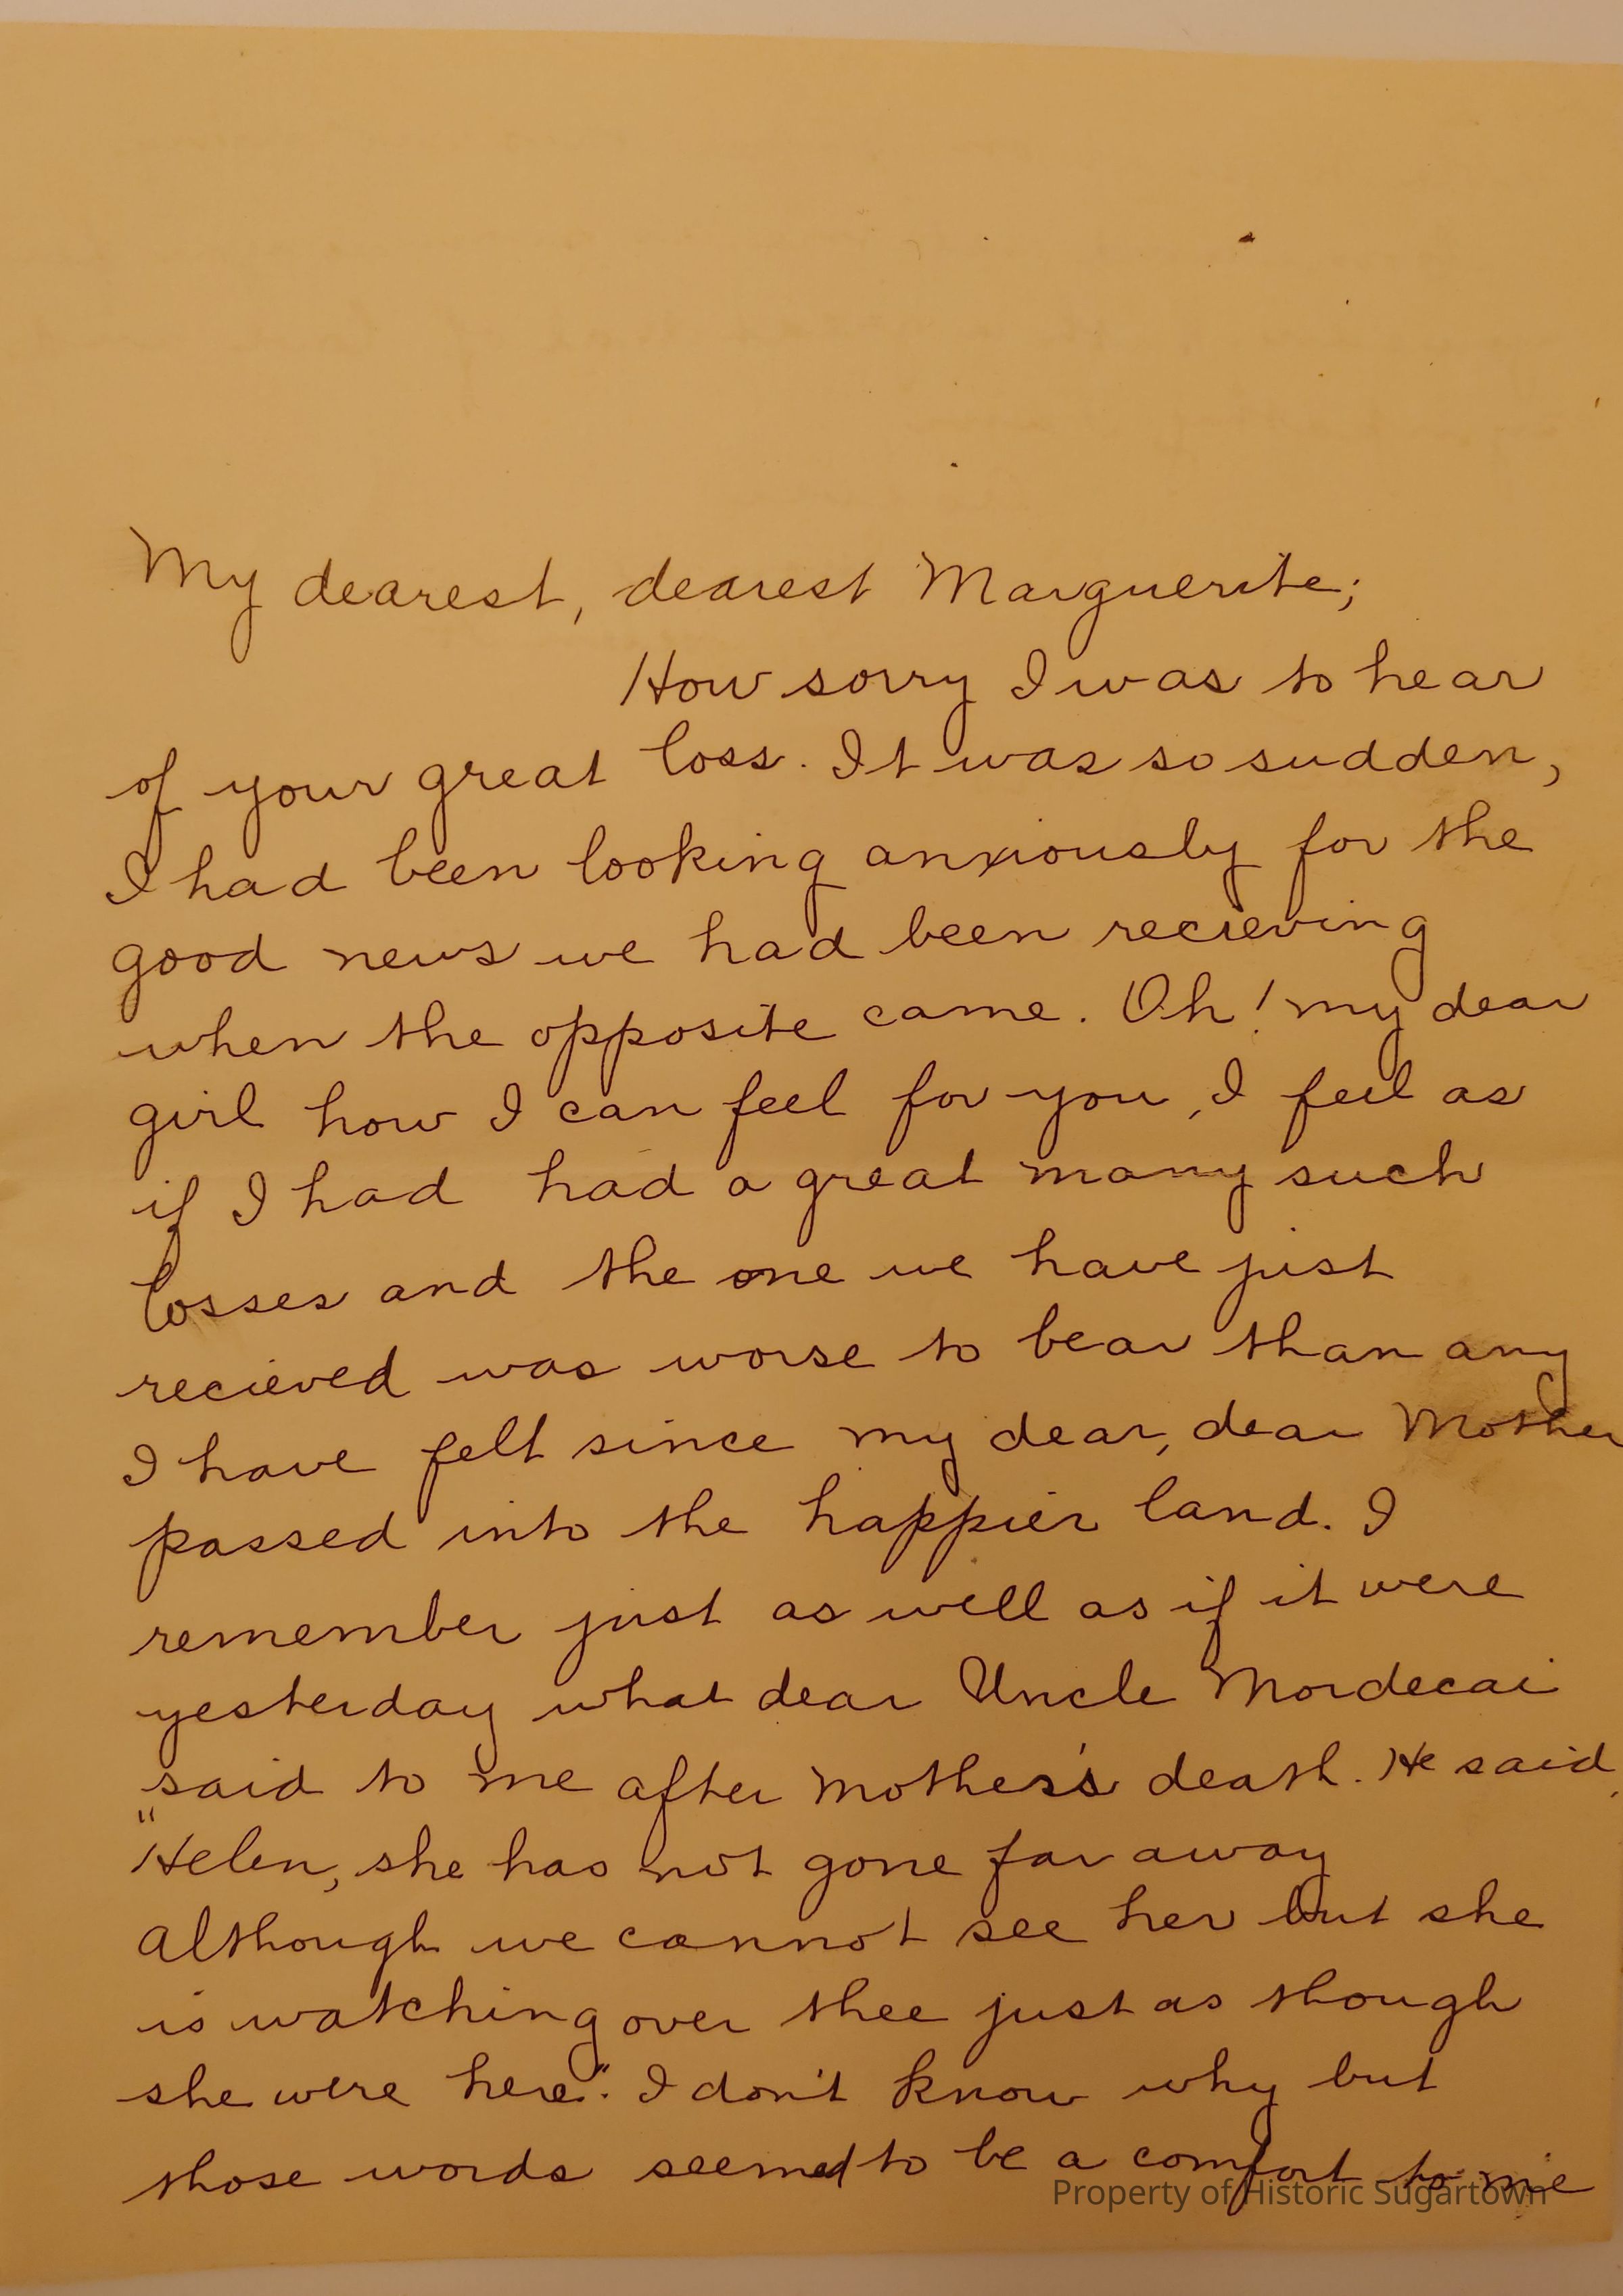 My dearest, dearest Marguerite;
How sorry I was to hear
of your great loss. It was so sudden,
I had been looking anxiously for the
good news we had been recieving
when the opposite came. Oh! my dear
girl how I can feel for you, I feel as
if I had had a great many such
losses and the one we have just
recieved was worse to bear than any
I have felt since my dear, dear Mother
passed into the happier land. I
remember just as well as if it were
yesterday what dear Uncle Mordecai
said to me after Mother's death. He said,
"Helen, she has not gone far away
Although we cannot see her but she
is watching over thee just as though
she were here". I don't know why but
those words seemed to be a comfort to me
Property of Historic Sugartown